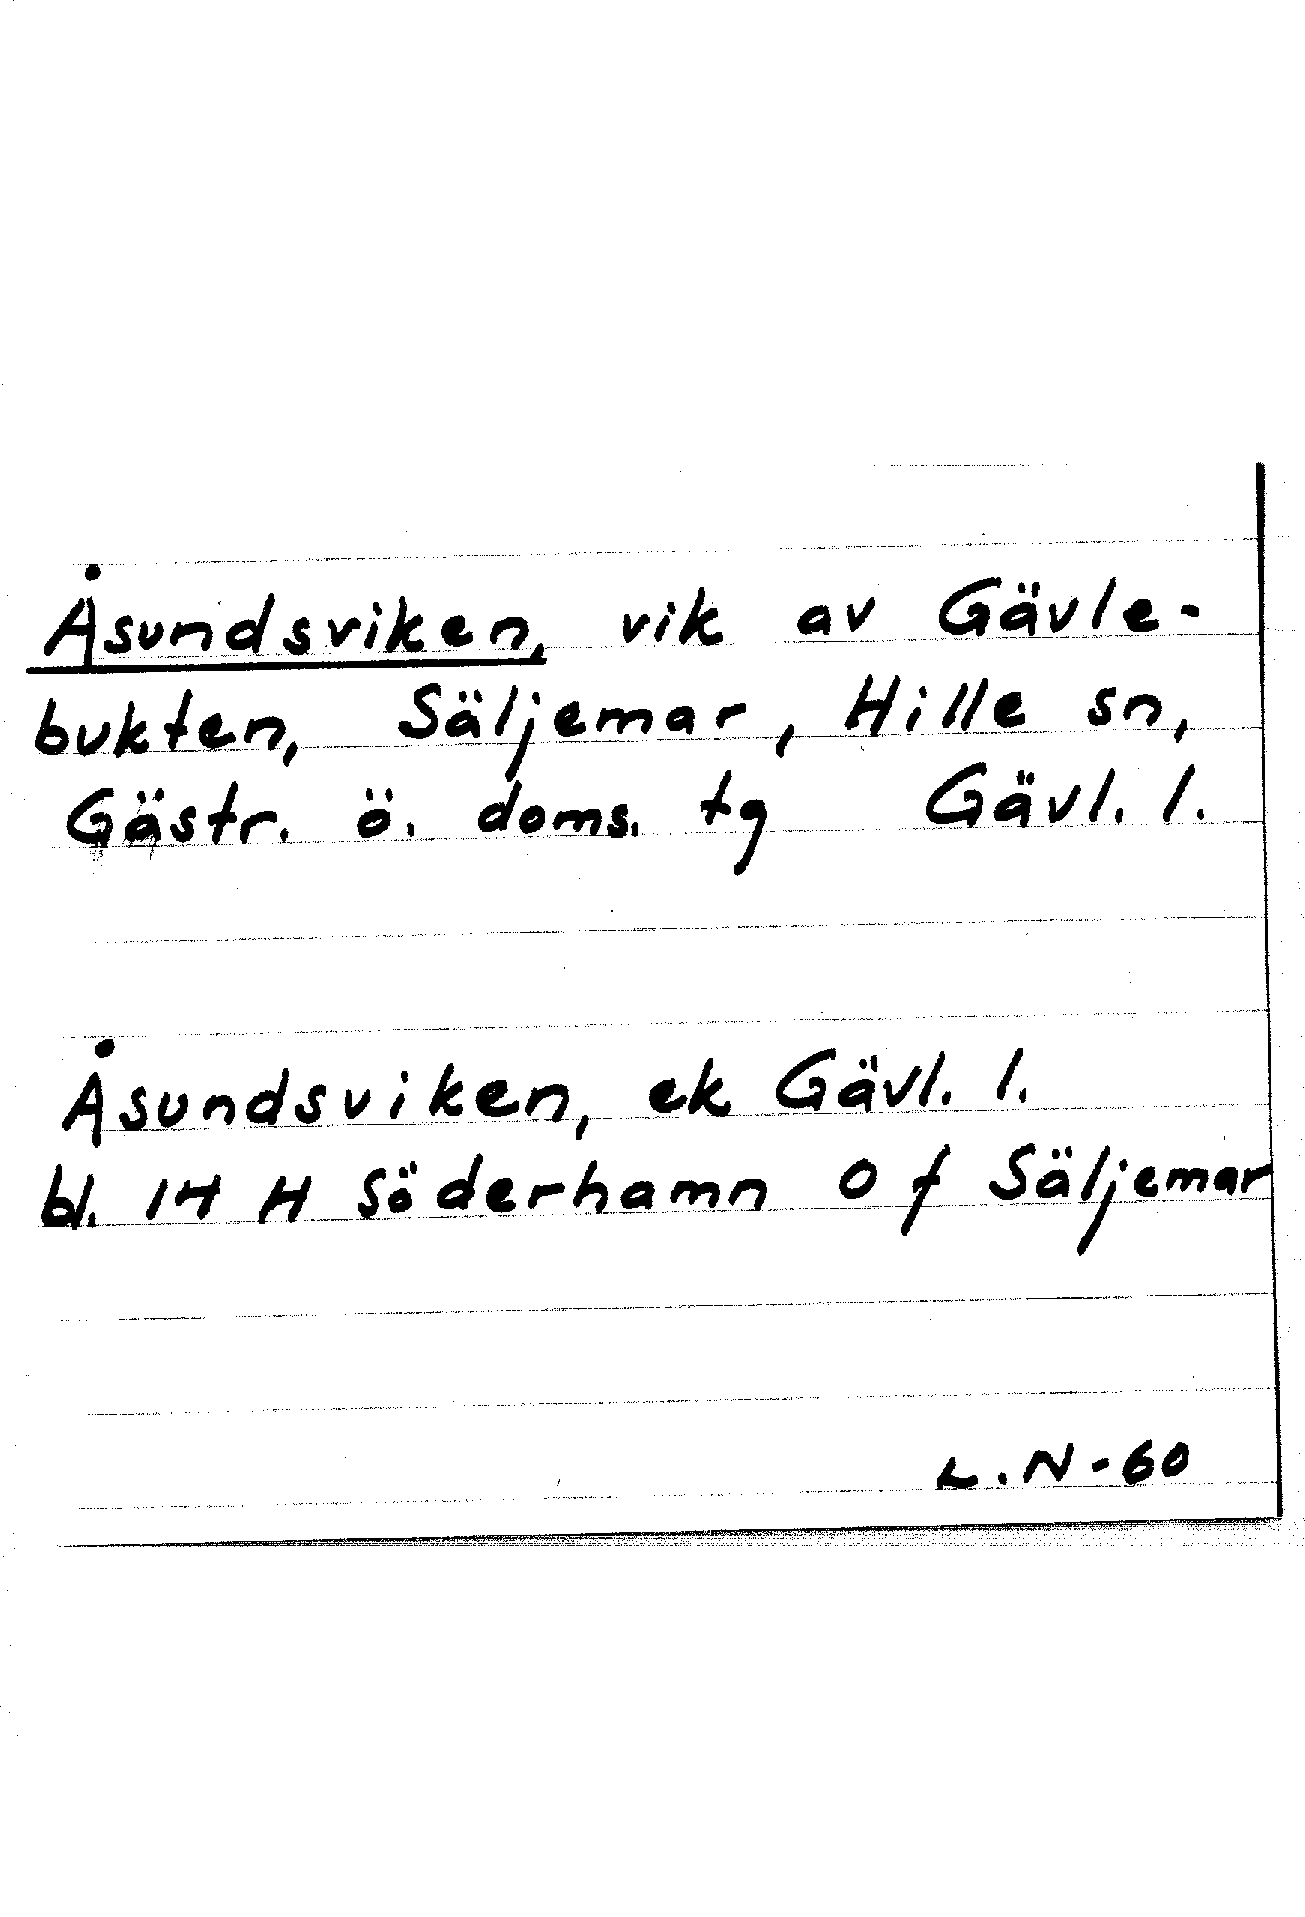 Åsundsviken, vik av Gävle-
bukten, Säljemar, Hille sn,
Gästr. ö. doms. tg Gävl. l.
Åsundsviken, ek Gävl. l.
bl. 14 H Söderhamn 0 f Säljemar
L. N - 60